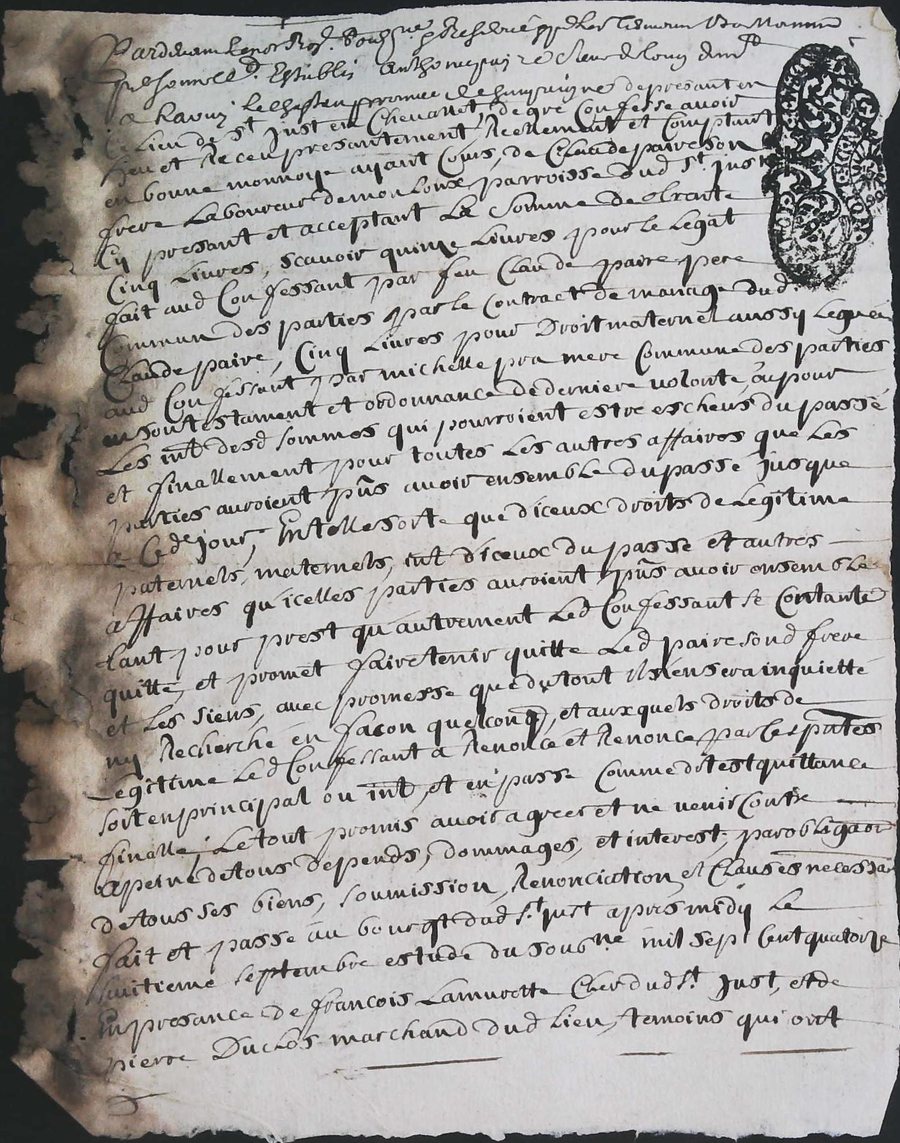 Pardevant le no.re Roy.l Soubz.né Reservé pp.d les temoins bas nommés
personnell. Establis anthoine paire
a Ravoin le chasteau province de deprésant en
Ce Lieu de S.t Just en Chevallet, de gré Confesse avoir
heu et Receu presantement, Reellement et Comptant
en bonne monnoye ayant Cours, de Claude paire son
frere Laboureur de monloux parroisse dud. S.t Just
Cy presant et acceptant La Somme de trante
Cinq Livres, scavoir quinze Livres pour le Legat
fait aud Confessant par feu Claude paire pere
Commun des parties par le Contract de mariage dud.
Claude paire, Cinq Livres pour Droit maternel aussy Legué
aud Confessant par michelle pra mere Commune des parties
en son testament et ordonnance de derniere volonté, pour
Les int. desd sommes qui pourroient estre escheus du passé
et finallement pour toutes Les autres affaires que Les
parties auroient pûs avoir ensemble du passé jusque
a Ce jour, En telle sorte que d'iceux droits de Legitime
paternels, maternels, int. d'iceux du passé et autres
affaires qu'icelles parties auroient pûs avoir ensemble
tant pour prest qu'autrement Led Confessant se Contante
quitte, et promet faire tenir quitte Led paire sond frere
et Les siens, avec promesse que du tout il n'en sera inquietté
ny Recherché en façon quelconq, et auxquels droits de
Legitime Led Confessant a Renoncé et Renonce par les p.ntes
soit en principal ou int., et en passe Comme dit est quittance
finalle; Le tout promis avoir agreer et ne venir Contre
a peine de tous depends, dommages, et interest; par obligaon
de tous ses biens, soumission, Renonciation, et Clauses necessa
fait et passé au bourgt dud S.t Just apres midy Le
huitieme septembre estude du soubs.né mil sept Cent quatorze
En presance de françois Lamurette Cher dud S.t Just, et de
pierre Duclos marchand dud Lieu, temoins qui ont